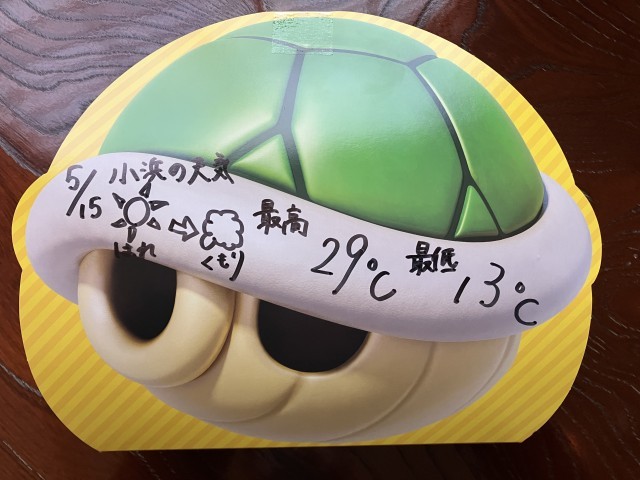 5/15 小浜の天気
はれ ⇨ くもり
最高 29℃ 最低 13℃